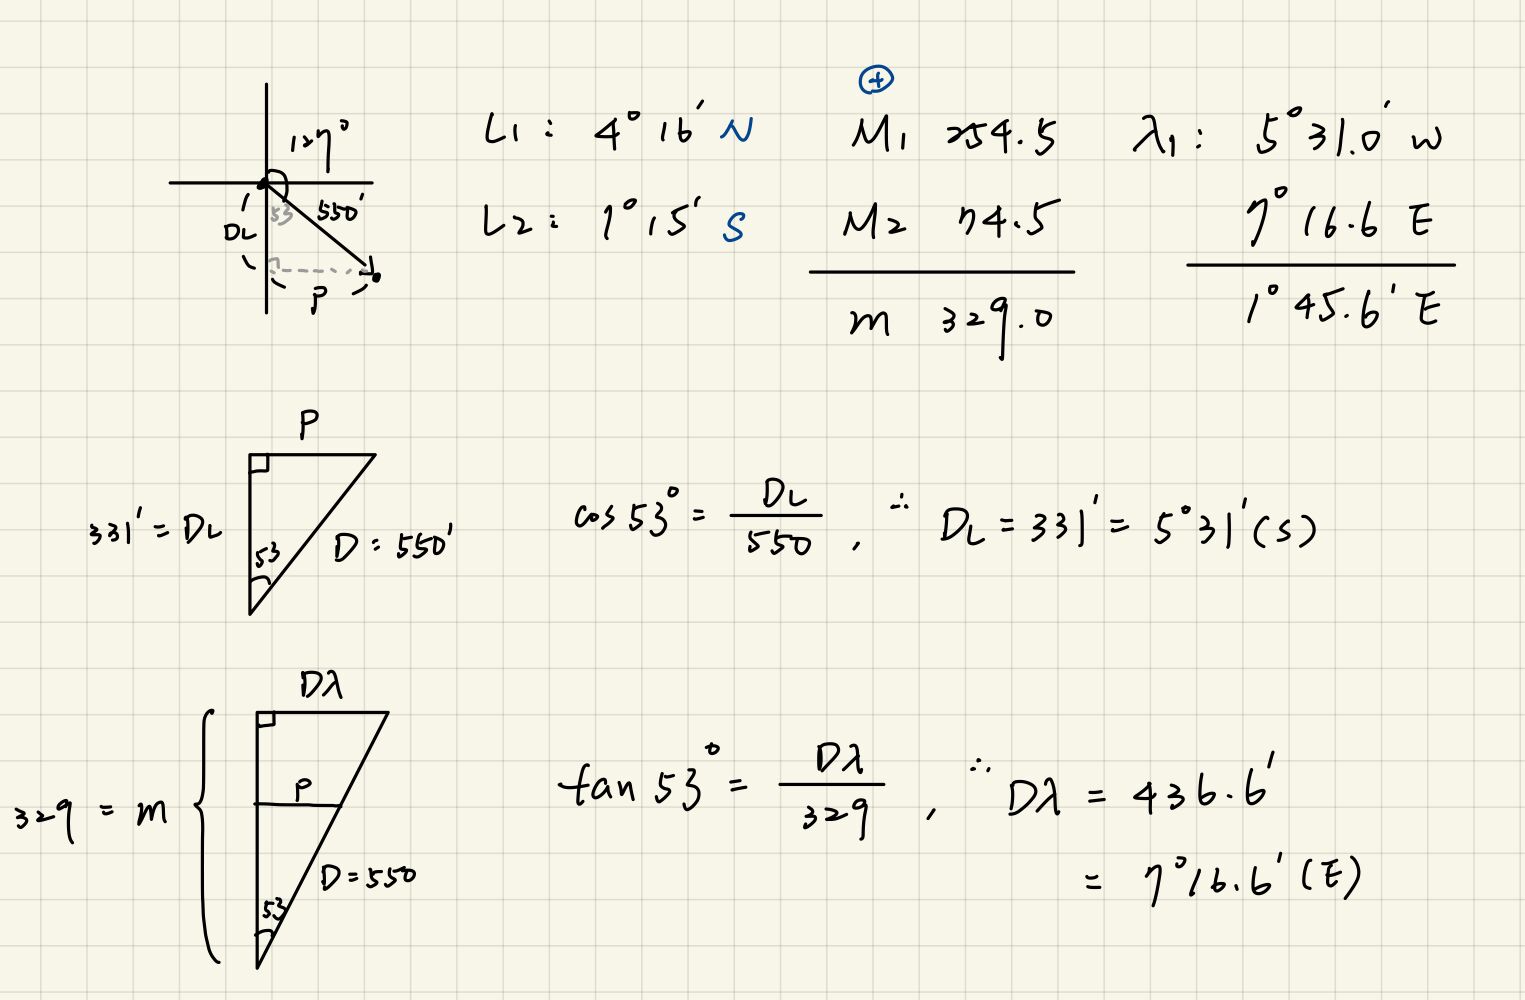 127°
53
550'
DL
P
L1 : 4° 16' N
L2 : 1° 15' S
⊕
M1 254.5
M2 74.5
m 329.0
λ1 : 5° 31.0' W
7° 16.6 E
1° 45.6' E
P
331' = DL
53
D : 550'
cos 53° = DL / 550 , ∴ DL = 331' = 5° 31' (S)
Dλ
329 = m
P
D = 550
53
tan 53° = Dλ / 329 , ∴ Dλ = 436.6'
= 7° 16.6' (E)